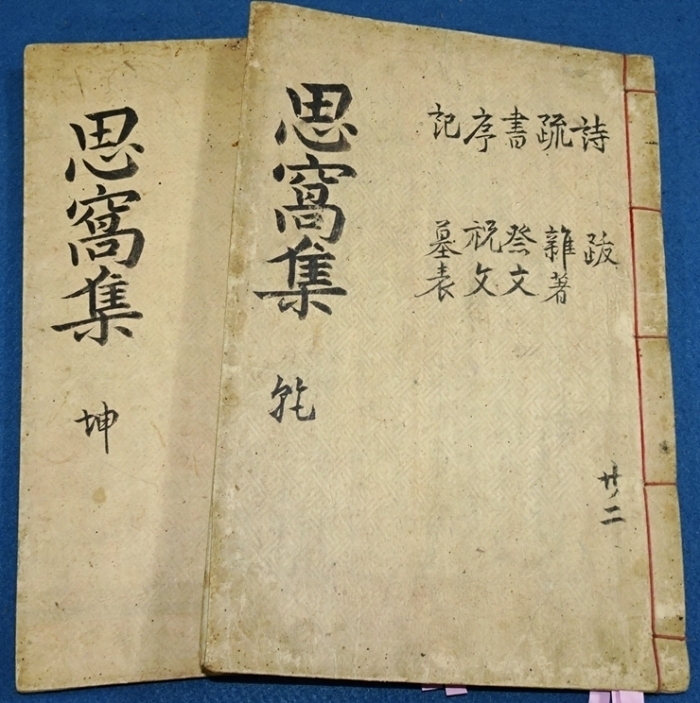 思窩集 乾
詩 跋
疏 雜著
書 祭文
序 祝文
記 墓表
共二
思窩集 坤